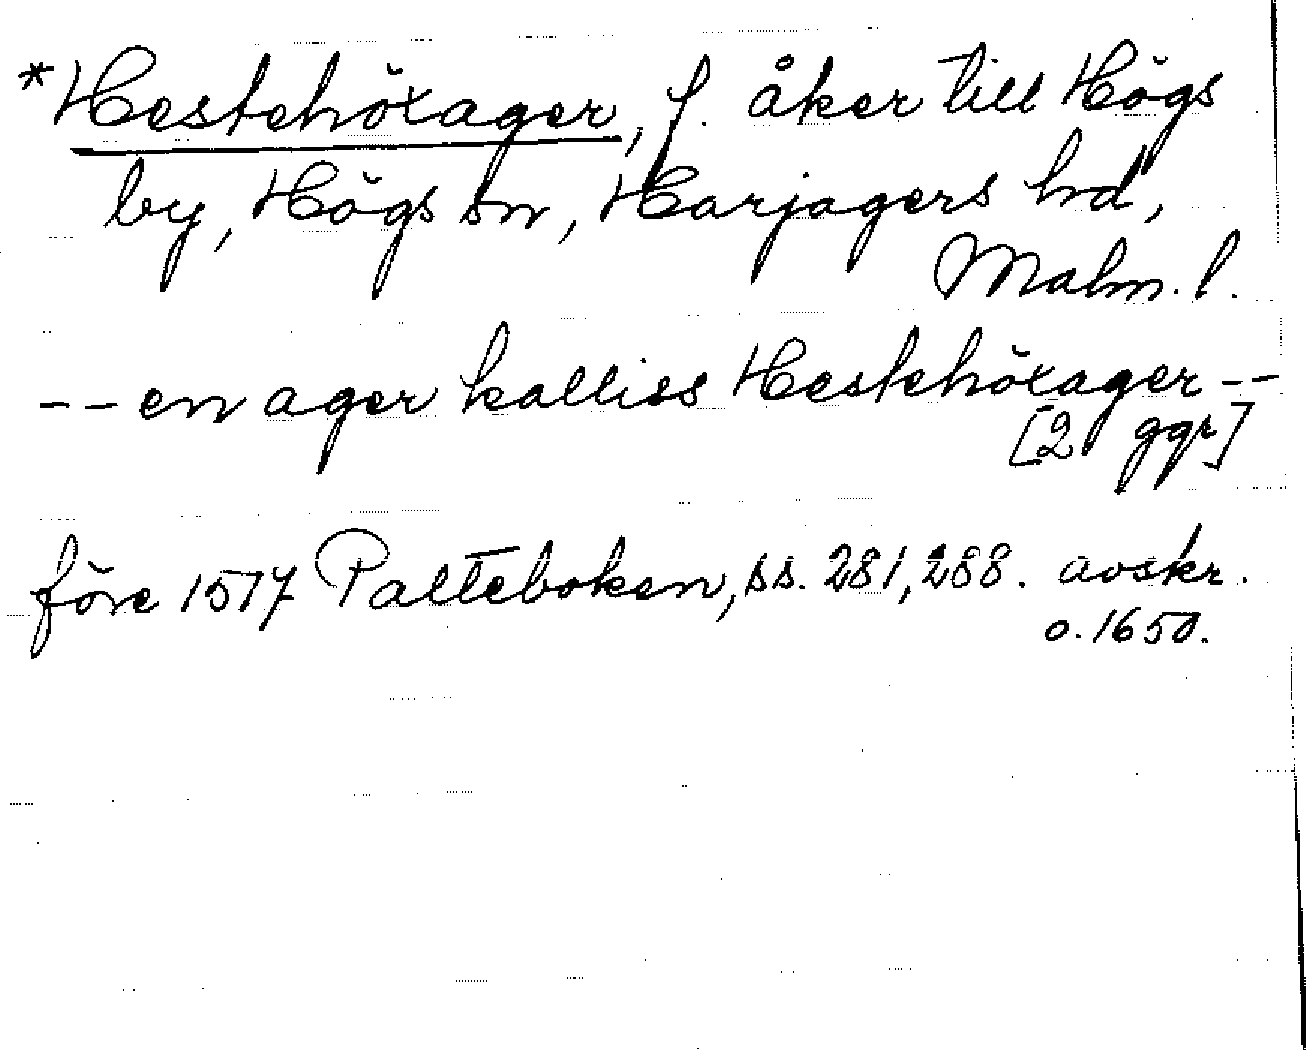 *Hestehöxager, f. åker till Högs
by, Högs sn, Harjagers hd,
Malm. l.
-- en ager kalliss Hestehöxager --
[2 ggr]
före 1517 Palteboken, ss. 281, 288. avskr.
o. 1650.